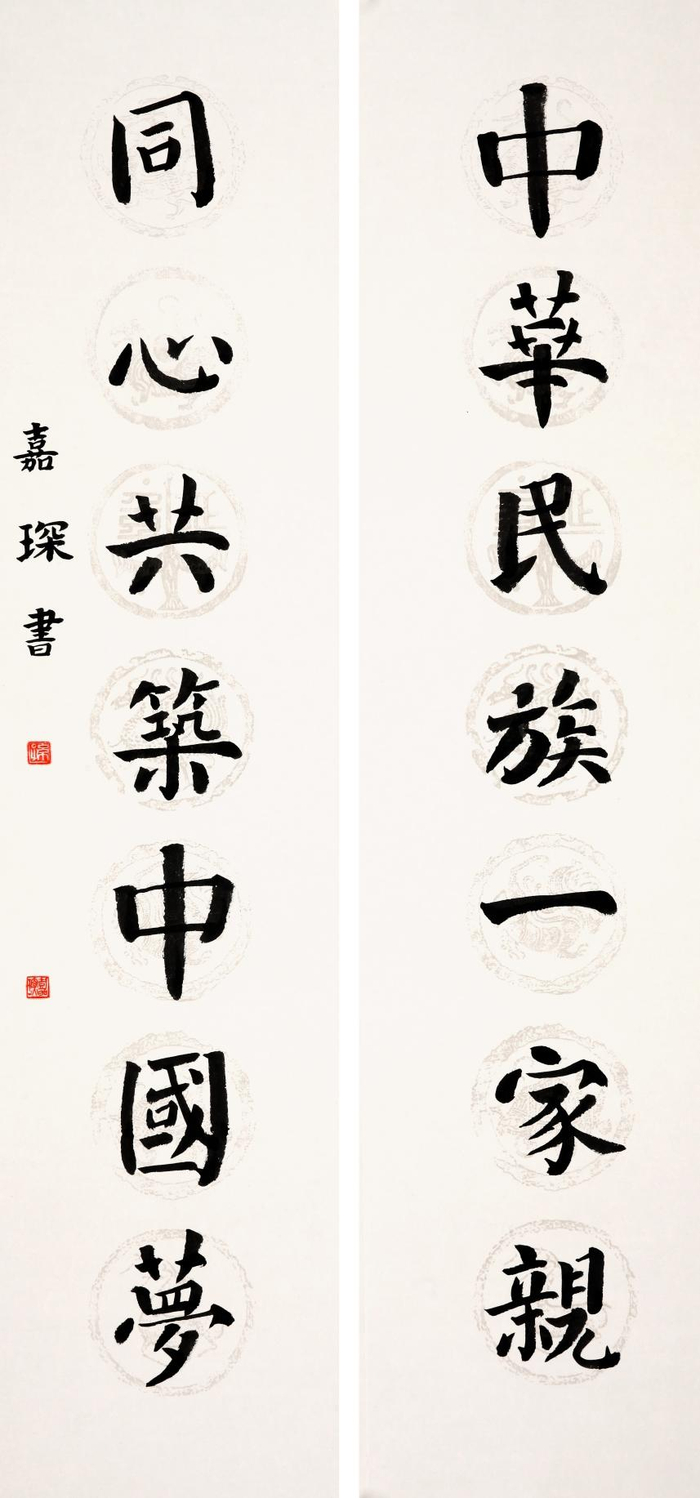 中華民族一家親
同心共築中國夢
嘉琛書